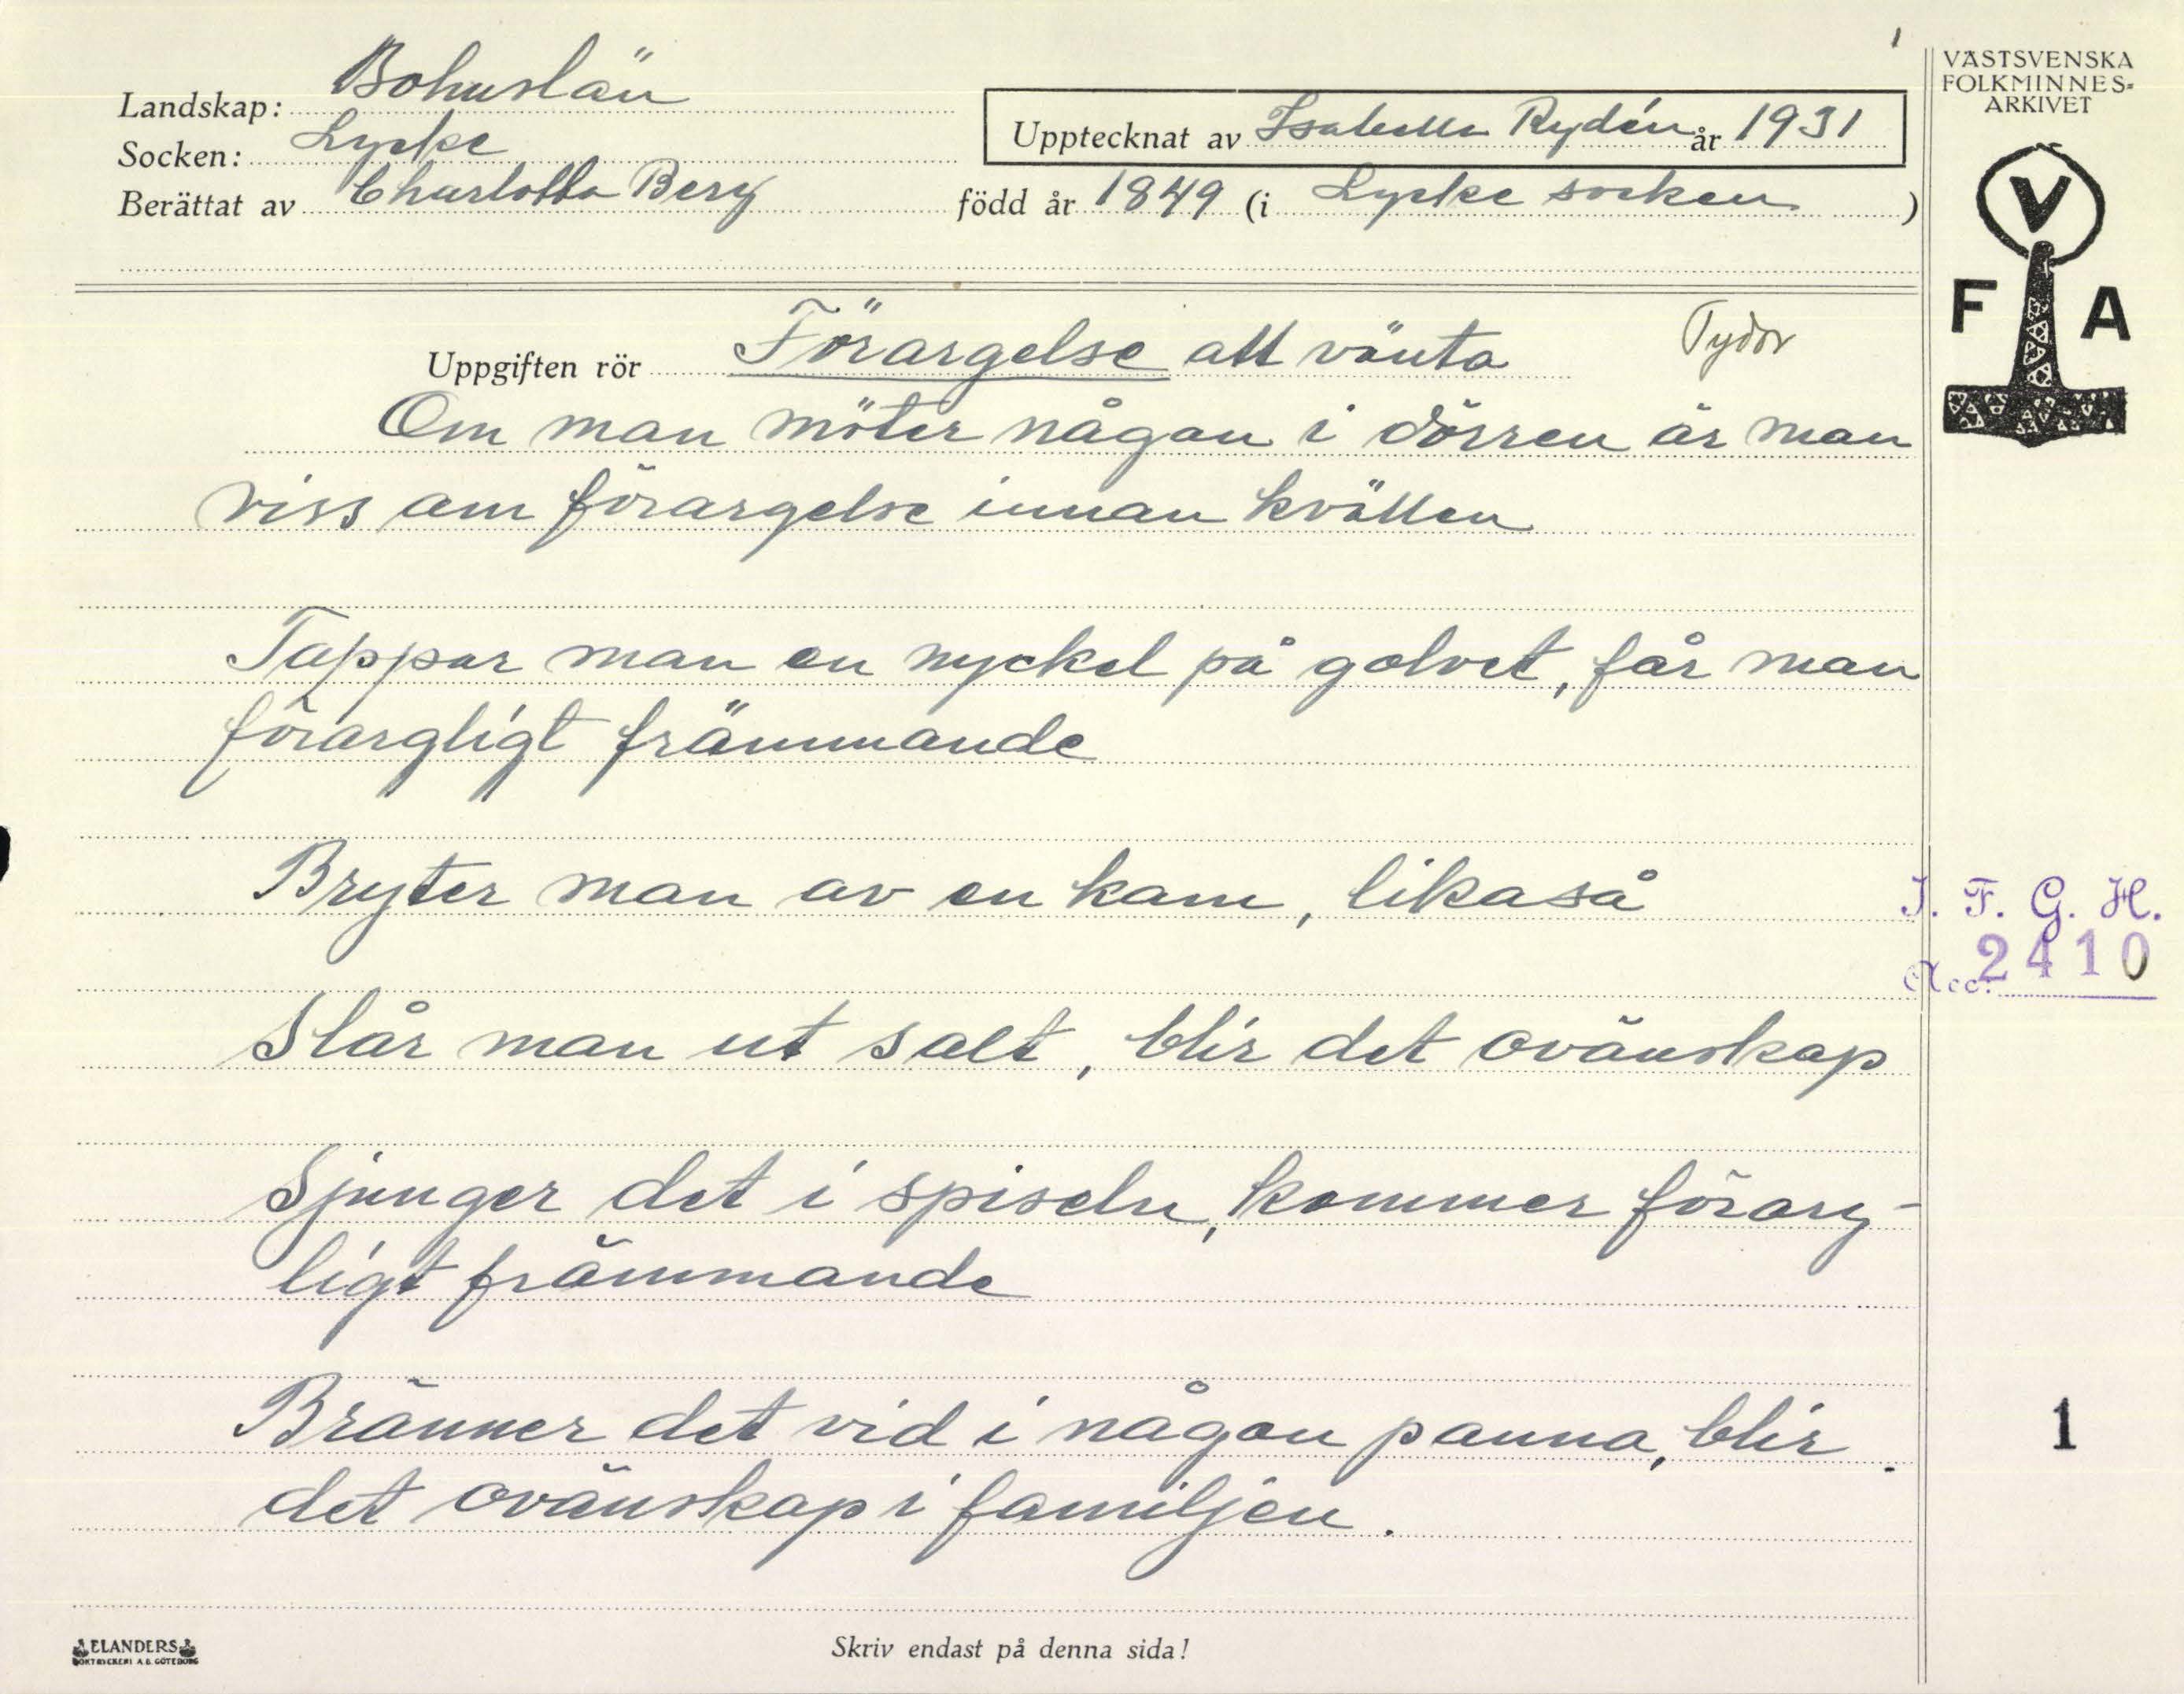 1
VÄSTSVENSKA
FOLKMINNES-
ARKIVET
V
F A
Landskap: Bohuslän
Socken: Lycke
Upptecknat av Isabella Rydén år 1931
Berättat av Charlotta Berg född år 1849 (i Lycke socken)
Uppgiften rör Förargelse att vänta
Tydor
Om man möter någon i dörren är man
viss om förargelse innan kvällen
Tappar man en nyckel på golvet, får man
förargligt främmande
Bryter man av en kam, likaså
I. F. G. H.
Acc. 2410
Slår man ut salt, blir det ovänskap
Sjunger det i spiseln, kommer förarg-
ligt främmande
Bränner det vid i någon panna, blir
det ovänskap i familjen.
1
ELANDERS
BOKTRYCKERI A.B. GÖTEBORG
Skriv endast på denna sida!